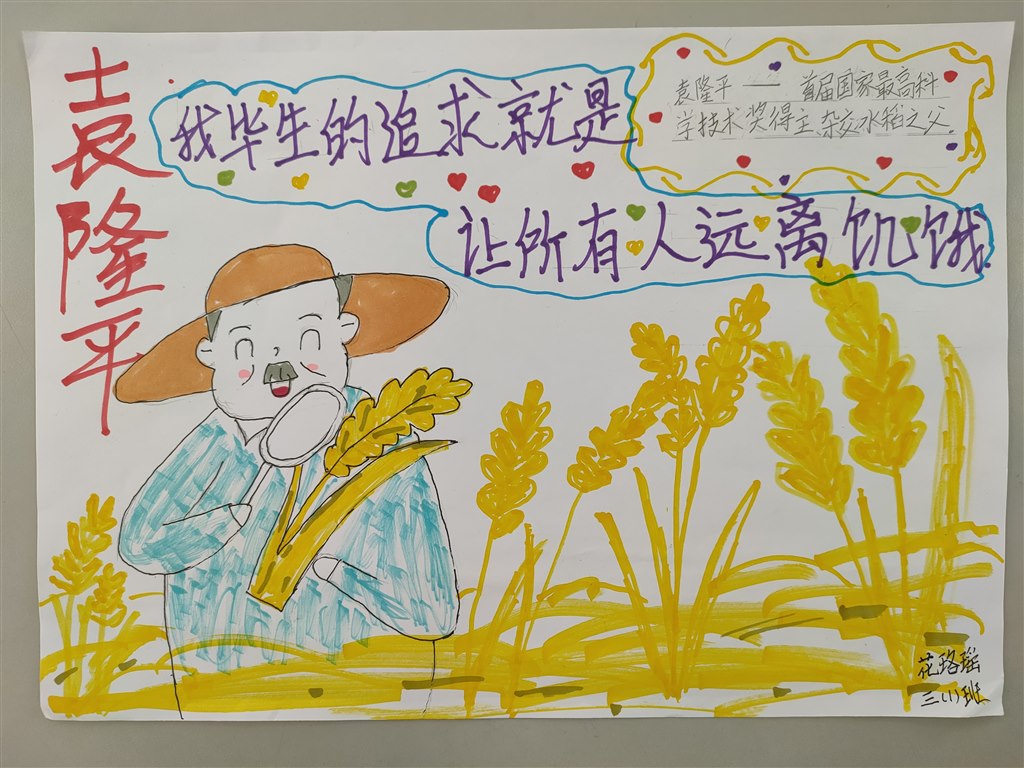 袁隆平
我毕生的追求就是
让所有人远离饥饿.
袁隆平 — 首届国家最高科
学技术奖得主,杂交水稻之父.
花珞瑶
三(1)班